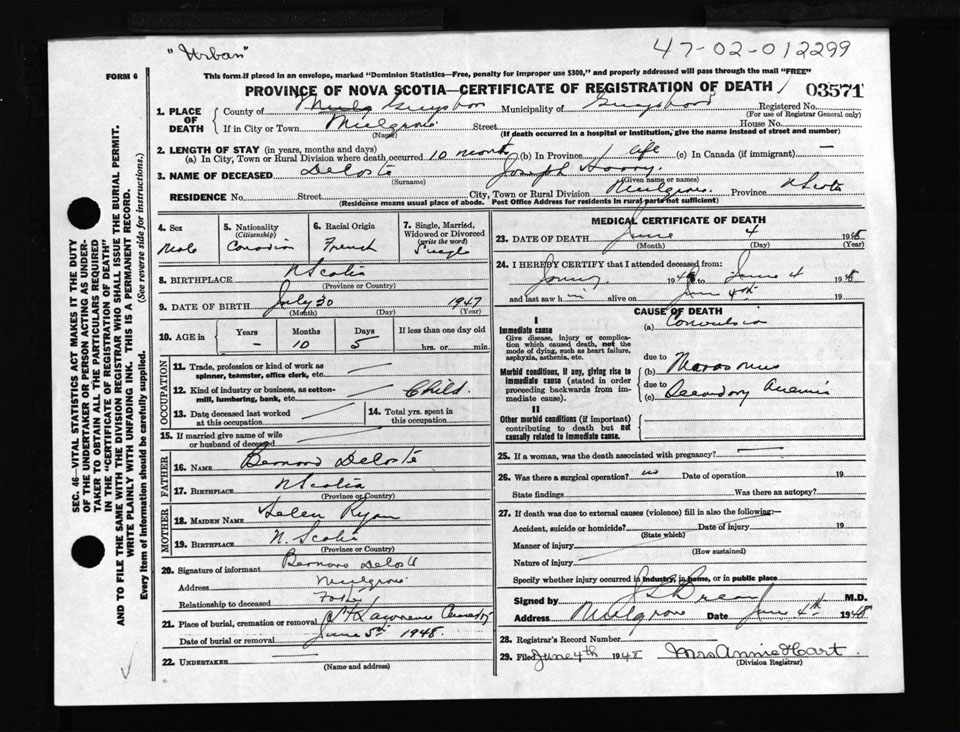 "Urban"
47-02-012299
FORM 6
This form if placed in an envelope, marked "Dominion Statistics—Free, penalty for improper use $300," and properly addressed will pass through the mail "FREE"
PROVINCE OF NOVA SCOTIA—CERTIFICATE OF REGISTRATION OF DEATH
03571
1. PLACE OF DEATH
County of Guysboro Municipality of Guysboro Registered No.
(For use of Registrar General only)
If in City or Town Mulgrave Street House No.
(Name) (If death occurred in a hospital or institution, give the name instead of street and number)
2. LENGTH OF STAY (in years, months and days)
(a) In City, Town or Rural Division where death occurred 10 months (b) In Province life (c) In Canada (if immigrant) —
3. NAME OF DECEASED Deloste Joseph
(Surname) (Given name or names)
RESIDENCE No. Street City, Town or Rural Division Mulgrave Province N Scotia
(Residence means usual place of abode. Post Office Address for residents in rural parts not sufficient)
4. Sex
Male
5. Nationality
(Citizenship)
Canadian
6. Racial Origin
French
7. Single, Married, Widowed or Divorced
(write the word)
Single
8. BIRTHPLACE N Scotia
(Province or Country)
9. DATE OF BIRTH July 30 1947
(Month) (Day) (Year)
10. AGE in Years Months Days If less than one day old
– 10 5 hrs. or min.
OCCUPATION
11. Trade, profession or kind of work as spinner, teamster, office clerk, etc.
12. Kind of industry or business, as cotton-mill, lumbering, bank, etc. Child.
13. Date deceased last worked at this occupation
14. Total yrs. spent in this occupation
15. If married give name of wife or husband of deceased
FATHER
16. NAME Bernard Deloste
17. BIRTHPLACE N Scotia
(Province or Country)
MOTHER
18. MAIDEN NAME Helen Ryan
19. BIRTHPLACE N. Scotia
(Province or Country)
20. Signature of informant Bernard Deloste
Address Mulgrave
Relationship to deceased Father
21. Place of burial, cremation or removal St Lawrence Cemetery
Date of burial or removal June 5th 1948.
22. UNDERTAKER
(Name and address)
MEDICAL CERTIFICATE OF DEATH
23. DATE OF DEATH June 4 1948
(Month) (Day) (Year)
24. I HEREBY CERTIFY that I attended deceased from:
19 48 June 4 1948
and last saw him alive on June 4th 19
CAUSE OF DEATH
I
Immediate cause
Give disease, injury or complication which caused death, not the mode of dying, such as heart failure, asphyxia, asthenia, etc.
(a) Convulsion
due to
Morbid conditions, if any, giving rise to immediate cause (stated in order proceeding backwards from immediate cause).
(b) Marasmus
due to
(c) Secondary Anemia
II
Other morbid conditions (if important) contributing to death but not causally related to immediate cause.
25. If a woman, was the death associated with pregnancy?
26. Was there a surgical operation? no Date of operation 19
State findings Was there an autopsy?
27. If death was due to external causes (violence) fill in also the following:—
Accident, suicide or homicide? Date of injury 19
(State which)
Manner of injury
(How sustained)
Nature of injury
Specify whether injury occurred in industry, in home, or in public place
Signed by M.D.
Address Mulgrave Date June 4th 1948
28. Registrar's Record Number
29. Filed June 4th 1948 Mrs Annie Hart.
(Division Registrar)
SEC. 46—VITAL STATISTICS ACT MAKES IT THE DUTY
OF THE UNDERTAKER OR PERSON ACTING AS UNDERTAKER TO OBTAIN ALL THE PARTICULARS REQUIRED
IN THE "CERTIFICATE OF REGISTRATION OF DEATH"
AND TO FILE THE SAME WITH THE DIVISION REGISTRAR WHO SHALL ISSUE THE BURIAL PERMIT.
WRITE PLAINLY WITH UNFADING INK. THIS IS A PERMANENT RECORD.
Every item of information should be carefully supplied. (See reverse side for instructions.)